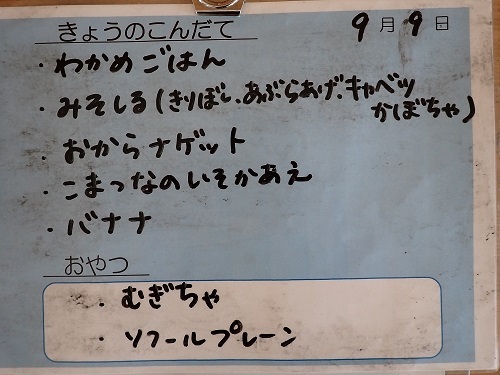 きょうのこんだて 9月9日
・わかめごはん
・みそしる(きりぼし、あぶらあげ、キャベツ
かぼちゃ)
・おからナゲット
・こまつなのいそかあえ
・バナナ
おやつ
・むぎちゃ
・ソフールプレーン